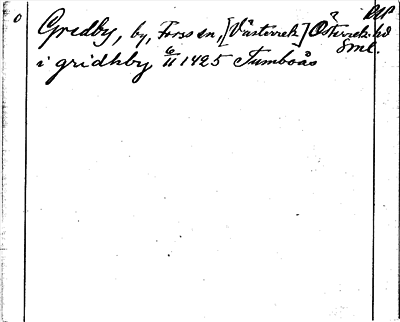 o
Gredby, by, Forssa sn, [Västerrek] Österrek. hd
Sml.
i gridhby 6/11 1425 Tumboås